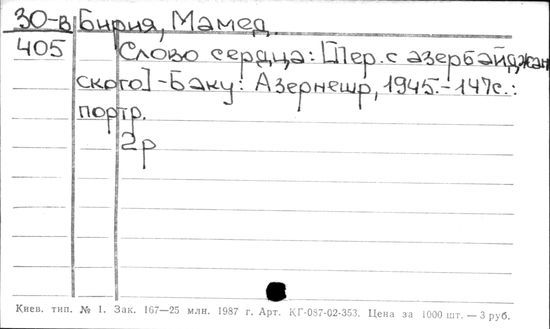 30-в Бирия, Мамед
405 Слово сердца: [Пер. с азербайджан
ского] - Баку: Азернешр, 1945. - 147с.:
портр.
2р
Киев. тип. № 1. Зак. 167—25 млн. 1987 г. Арт. КГ-087-02-353. Цена за 1000 шт. — 3 руб.